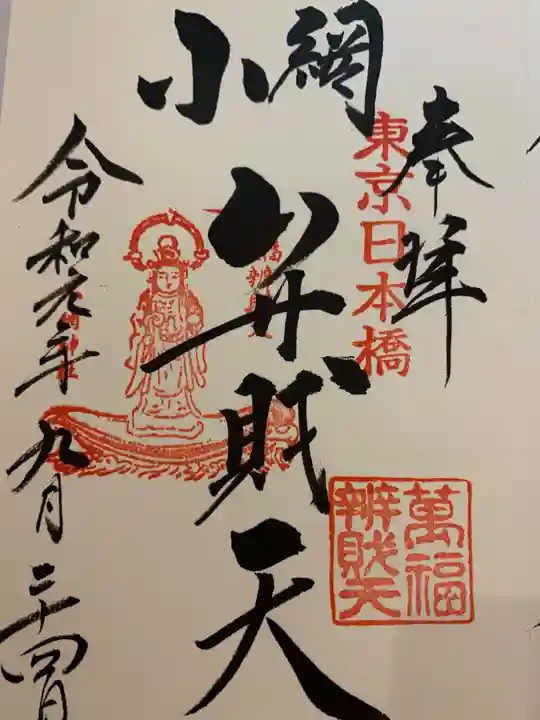 奉拝
東京日本橋
萬福
辨財天
小網
弁財天
令和元年九月二十四日